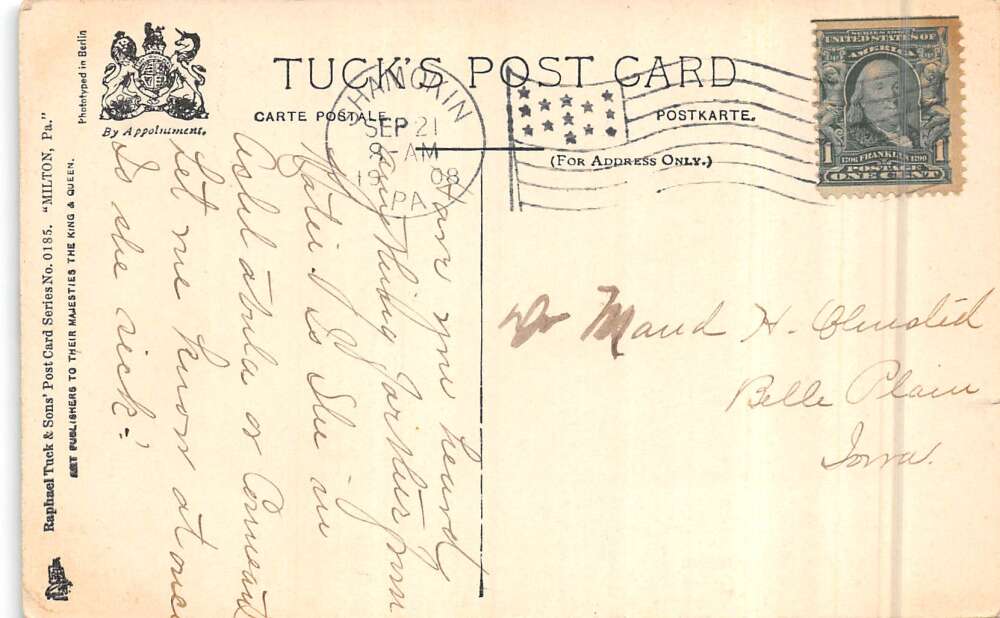 TUCK'S POST CARD
CARTE POSTALE.
POSTKARTE.
(FOR ADDRESS ONLY.)
By Appointment.
Phototyped in Berlin
Raphael Tuck & Sons' Post Card Series No. 0185. "MILTON, Pa."
ART PUBLISHERS TO THEIR MAJESTIES THE KING & QUEEN.
SHAMOKIN
SEP 21
9-AM
1908
PA
UNITED STATES OF
AMERICA
1
1706 FRANKLIN 1790
POSTAGE
ONE CENT
Have you heard
anything further from
Katie? Is She in
Ashtabula or Conneaut
Let me know at once
Is she sick?
Dr Maud H. Olmsted
Belle Plain
Iowa.